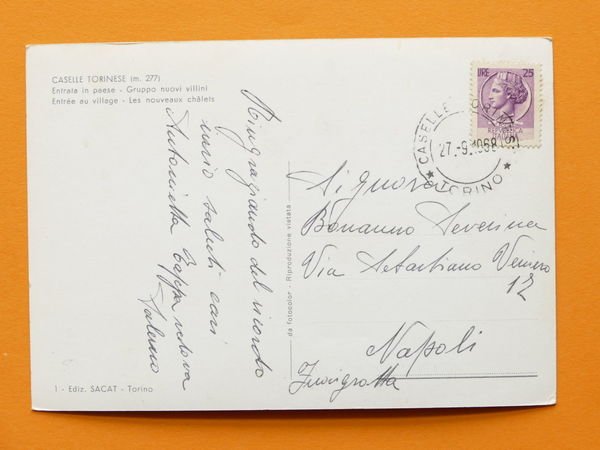 CASELLE TORINESE (m. 277)
Entrata in paese - Gruppo nuovi villini
Entrée au village - Les nouveaux châlets
Ringraziando del ricordo
invio saluti cari
Antonietta Zappa vedova
Salerno
1 - Ediz. SACAT - Torino
da fotocolor - Riproduzione vietata
LIRE 25
REPVBBLICA
ITALIANA
CASELLE TORINESE
27.-9.1968
* TORINO *
Signora
Bonanno Severina
Via Sebastiano Veniero
12
Napoli
Fuorigrotta